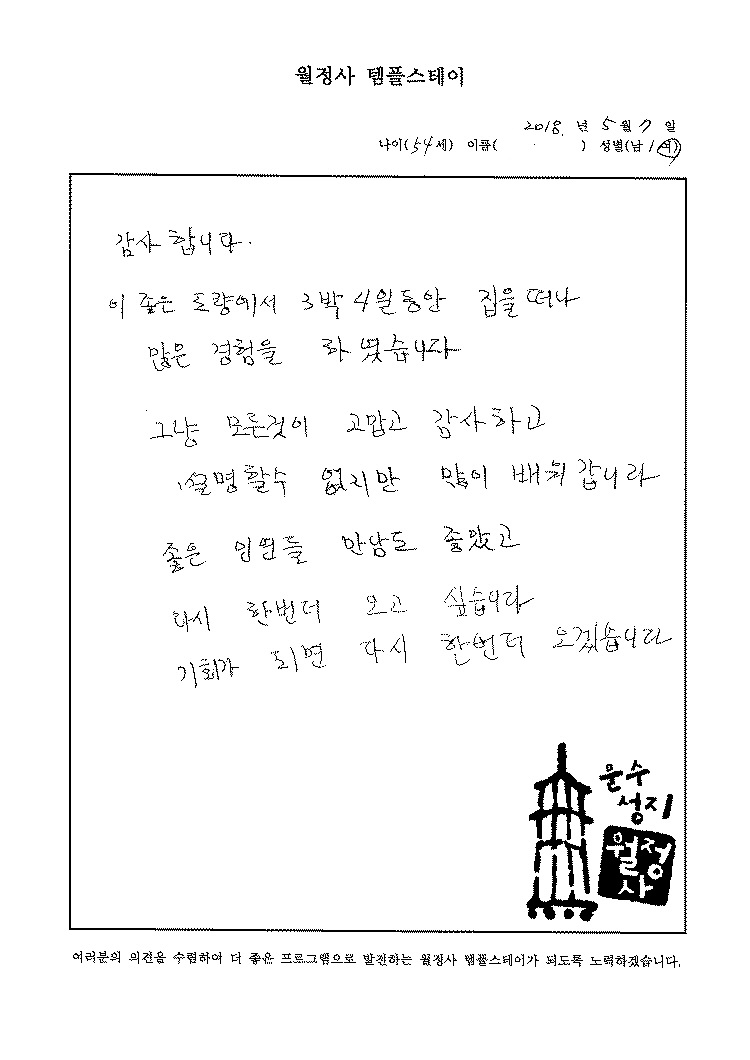 월정사 템플스테이
2018. 년 5 월 7 일
나이(54세) 이름( ) 성별(남 / 여)
감사합니다.
이 좋은 도량에서 3박 4일동안 집을 떠나
많은 경험을 하였습니다
그냥 모든것이 고맙고 감사하고
설명할수 없지만 많이 배워갑니다
좋은 인연들 만남도 좋았고
다시 한번더 오고 싶습니다
기회가 되면 다시 한번더 오겠습니다
문수
성지
월정
사
여러분의 의견을 수렴하여 더 좋은 프로그램으로 발전하는 월정사 템플스테이가 되도록 노력하겠습니다.